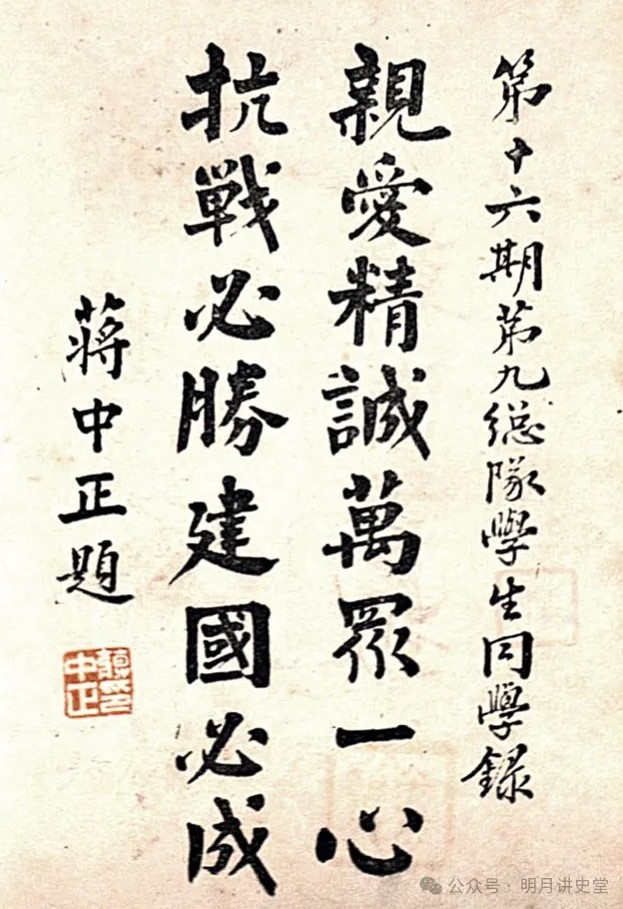 第十六期第九總隊學生同學録
親愛精誠萬眾一心
抗戰必勝建國必成
蔣中正題
中正
公众号·明月讲史堂